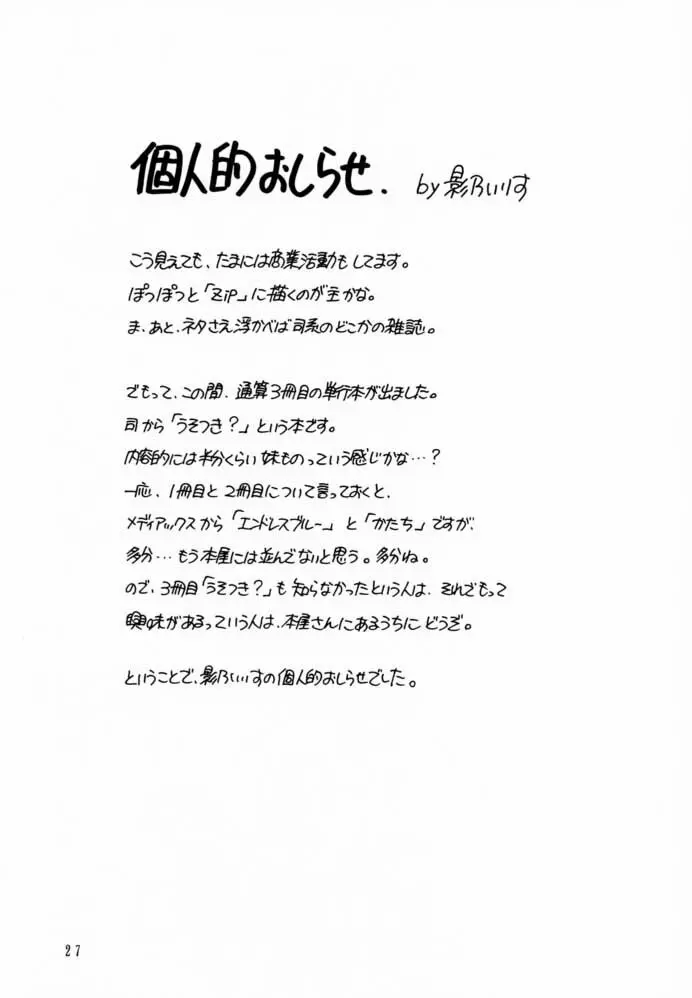 個人的おしらせ. by影乃いりす
こう見えても、たまには商業活動もしてます。
ぽっぽっと「ZiP」に描くのが主かな。
ま、あと、ネタさえ浮かべば司系のどこかの雑誌。
でもって、この間、通算3冊目の単行本が出ました。
司から「うそつき?」という本です。
内容的には半分くらい妹ものっていう感じかな…?
一応、1冊目と2冊目について言っておくと、
メディアックスから「エンドレスブルー」と「かたち」ですが、
多分…もう本屋には並んでないと思う。多分ね。
ので、3冊目「うそつき?」も知らなかったという人は、それでもって
興味があるっていう人は、本屋さんにあるうちにどうぞ。
ということで、影乃いりすの個人的おしらせでした。
27